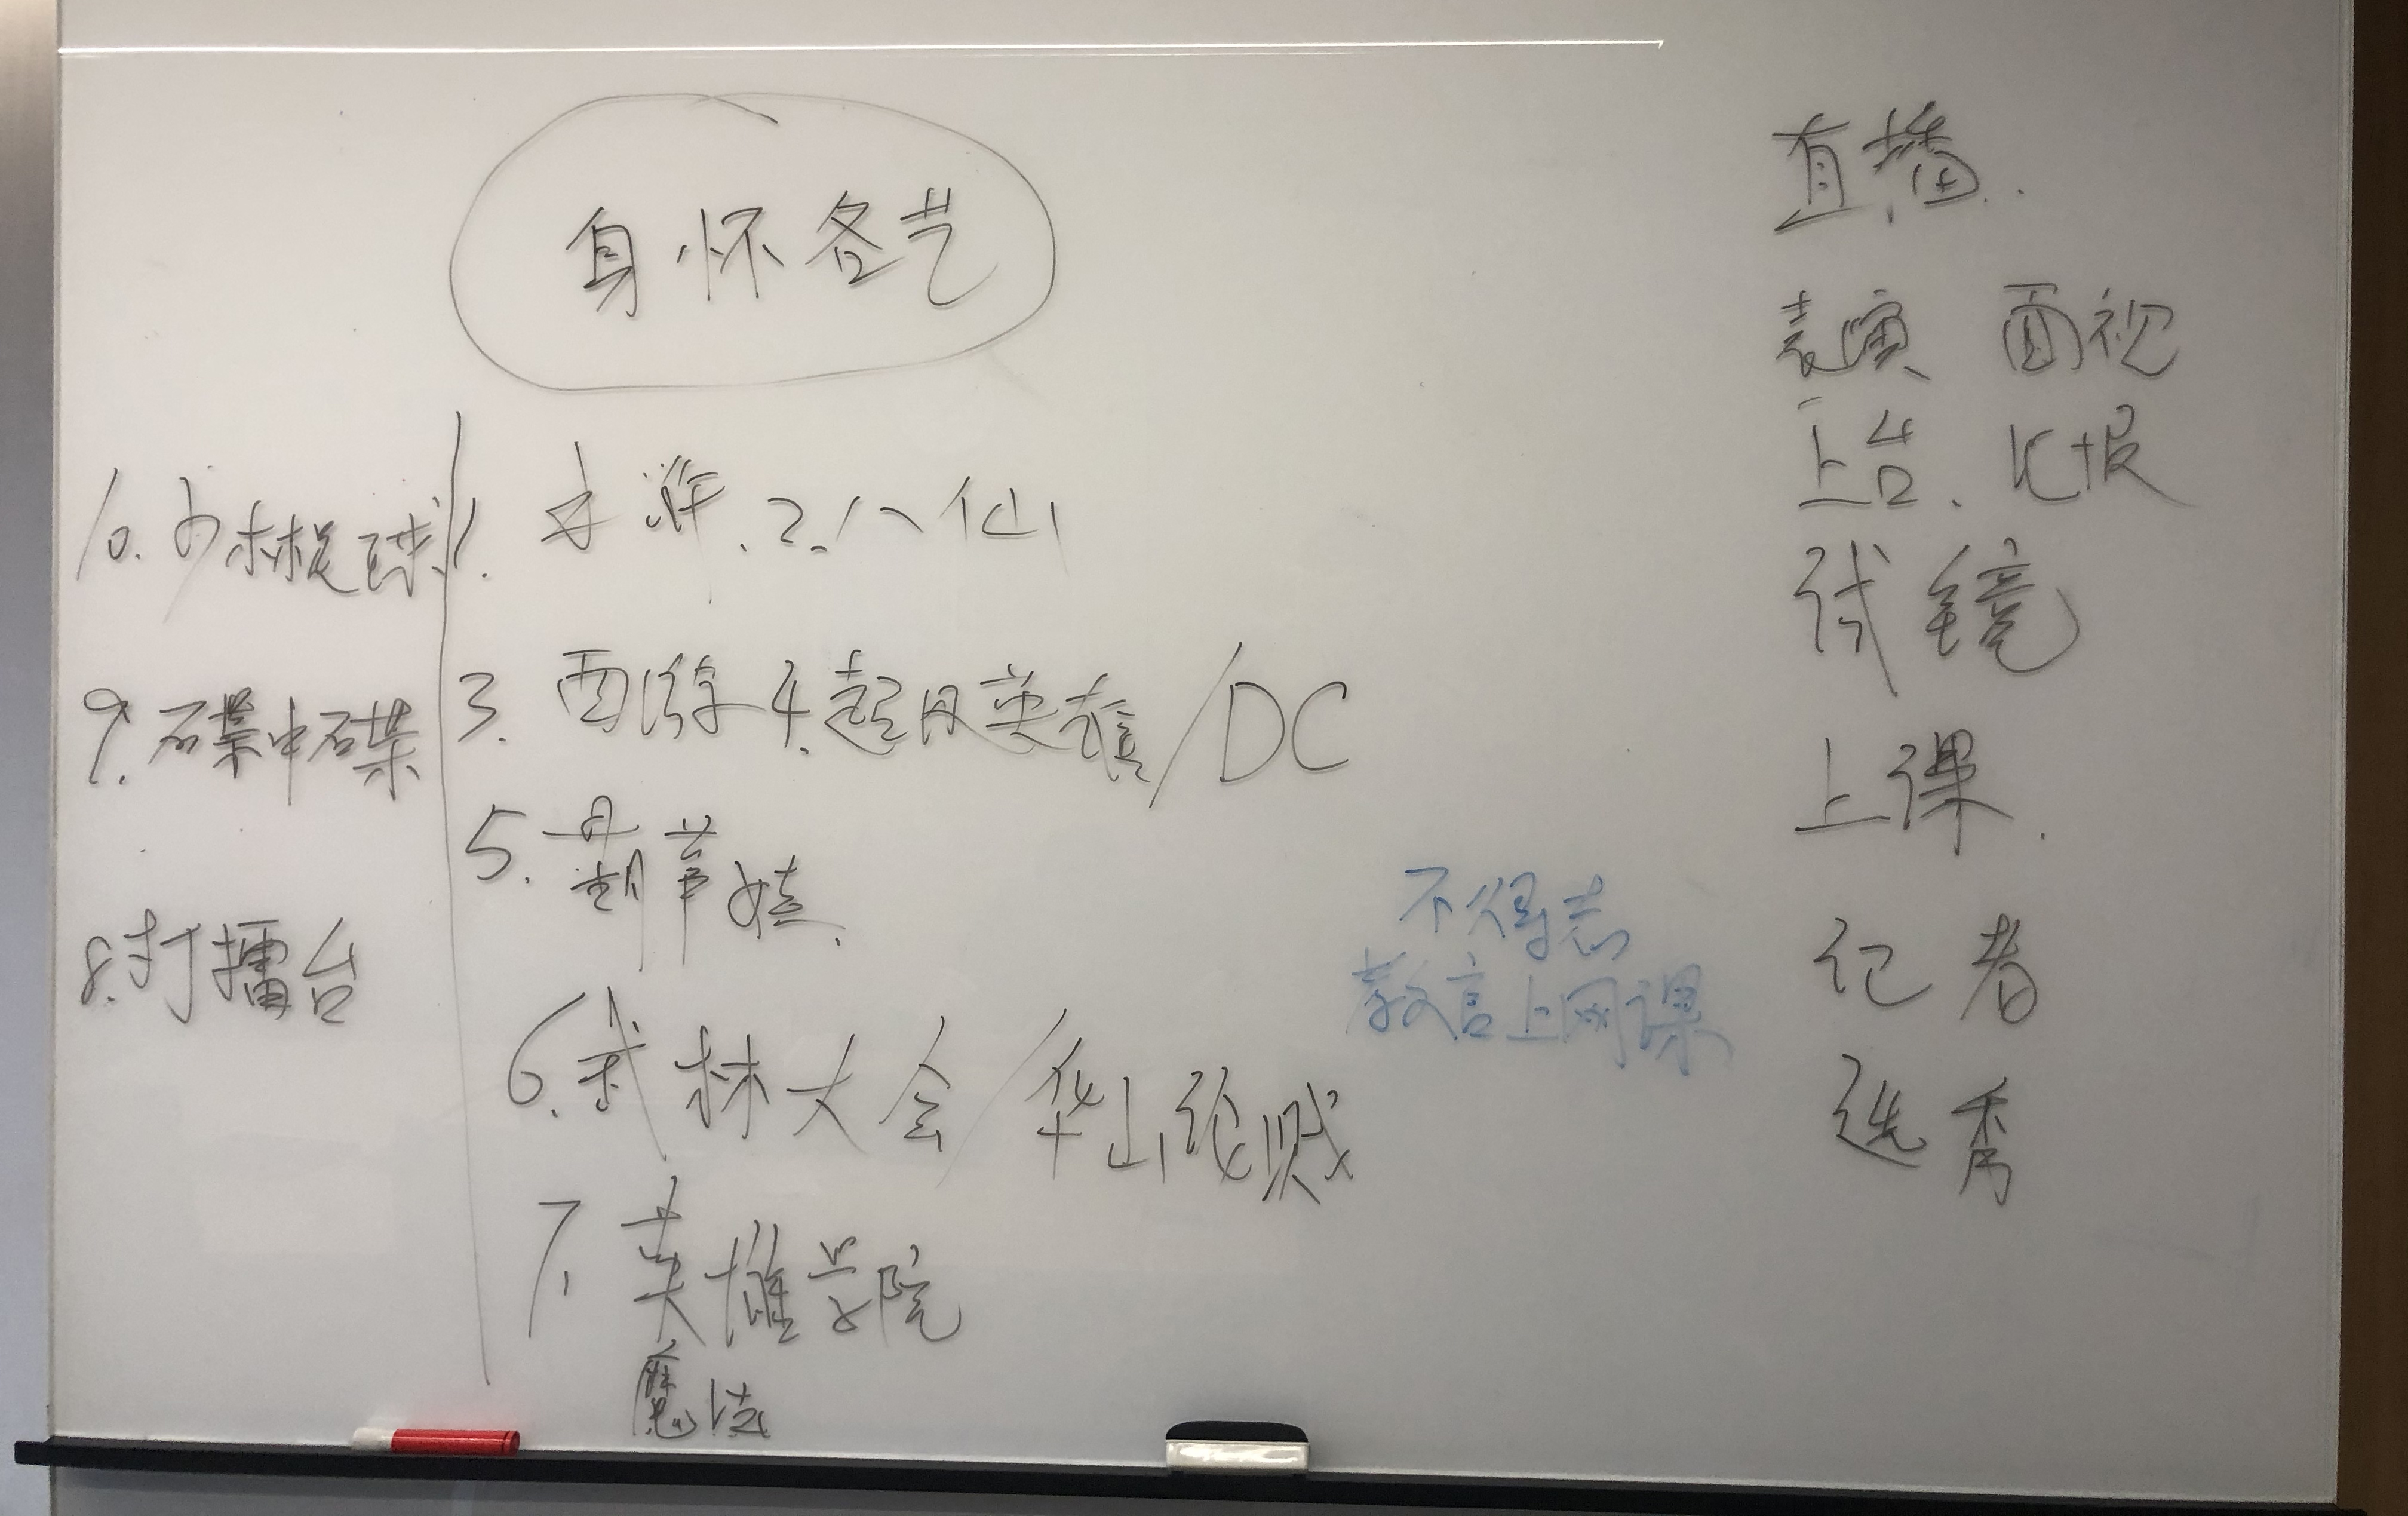 身怀各艺
1. 水浒. 2. 八仙
3. 西游 4. 超级英雄/DC
5. 葫芦娃.
6. 武林大会/华山论贱
7. 英雄学院
魔法
8. 打擂台
9. 碟中碟
10. 少林足球
不得志
教官上网课
直播.
表演、面视
上台. 汇报
试镜
上课.
记者
选秀